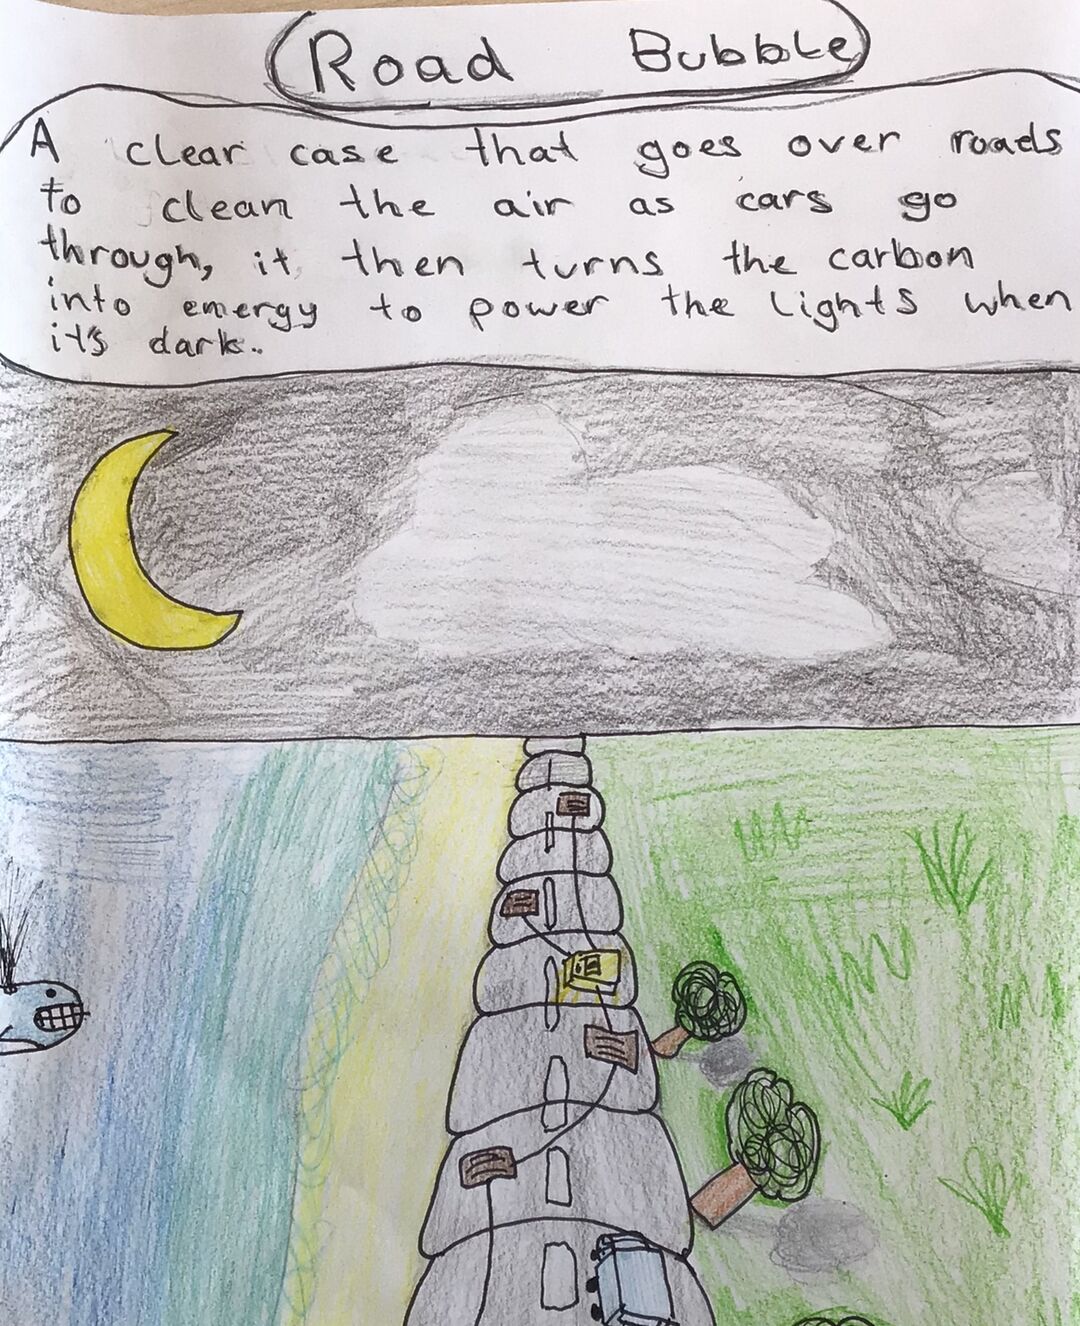 Road Bubble
A clear case that goes over roads
to clean the air as cars go
through, it then turns the carbon
into energy to power the lights when
it's dark.